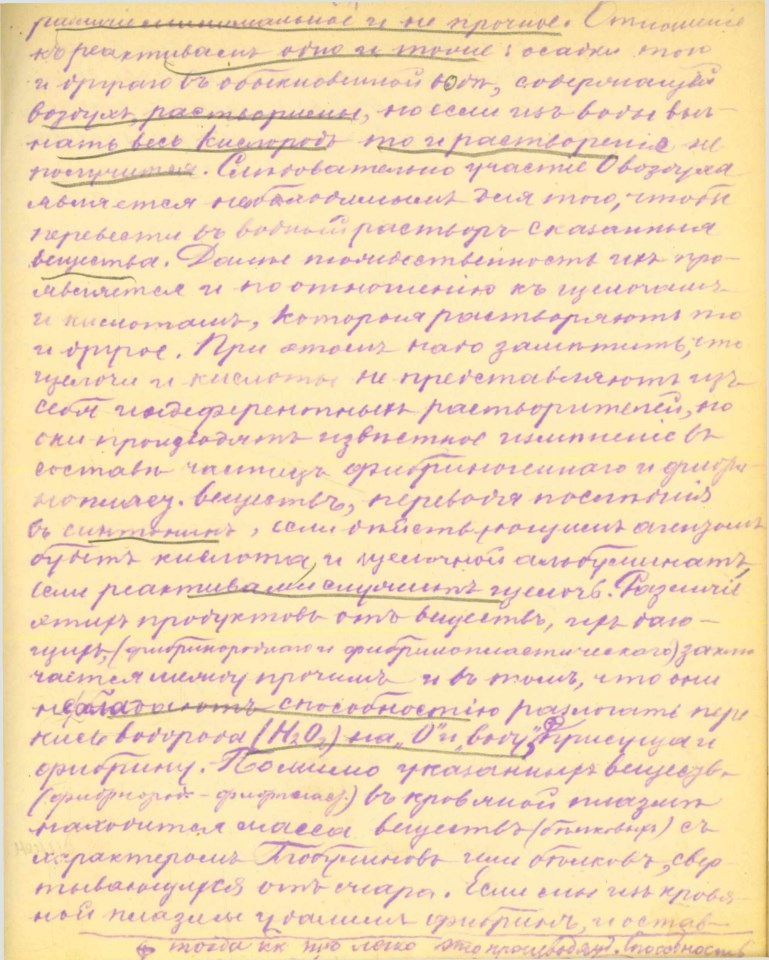 различіе минимальное и не прочное. Отношеніе
къ реактивамъ одно и тоже: осадки того
и другаго въ обыкновенной водѣ, содержащей
воздухъ, растворимы, но если изъ воды выг-
нать весь кислородъ то и раствореніе не
получится. Слѣдовательно участіе О воздуха
является необходимымъ для того, чтобы
перевести въ водный растворъ сказанныя
вещества. Далѣе тождественность ихъ про-
является и по отношенію къ щелочамъ
и кислотамъ, которыя растворяютъ то
и другое. При этомъ надо замѣтить, что
щелочи и кислоты не представляютъ изъ
себя индеферентныхъ растворителей, но
они производятъ извѣстное измѣненіе въ
составѣ частицъ фибриногеннаго и фибри-
нопласт. веществъ, переводя послѣднія
въ синтонинъ, если дѣйствующимъ агентомъ
будетъ кислота, и щелочной альбуминатъ,
если реактивами служитъ щелочь. Различіе
этихъ продуктовъ отъ веществъ, ихъ даю-
щихъ, (фибринороднаго и фибринопластическаго) заклю
чается между прочимъ и въ томъ, что они
не обладаютъ способностію разлагать пере
кись водорода (H₂O₂) на „О" и „воду", присущая и
фибрину. Помимо указанныхъ веществъ
(фибринород. - фибрпласт.) въ кровяной плазмѣ
находится масса веществъ (бѣлковыхъ) съ
характеромъ Глобулиновъ или бѣлковъ, свер
тывающихся отъ жара. Если мы изъ кровя-
ной плазмы удалимъ фибринъ, и остав-
тогда кк легко это производятъ. способность